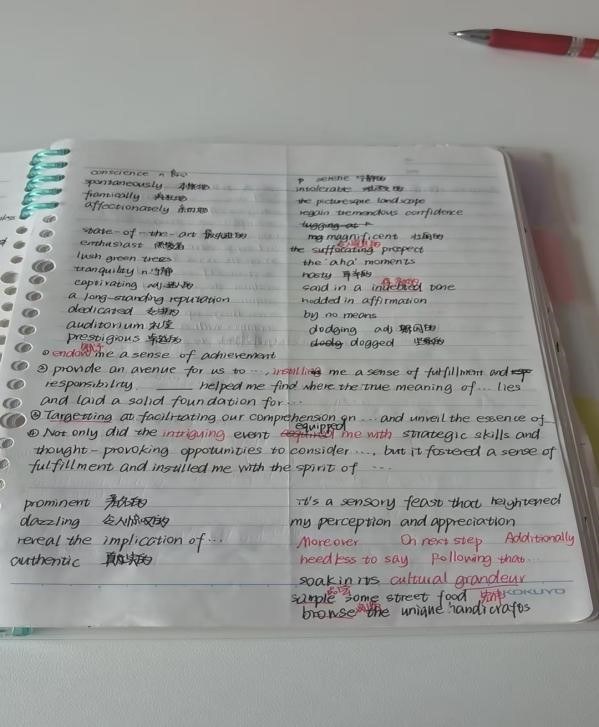 conscience n 良心
spontaneously 本能地
frantically 疯狂地
affectionately 亲切地
state-of-the-art 最先进的
enthusiast 热衷者
lush green trees
tranquility n 宁静
captivating adj 迷人的
a long-standing reputation
dedicated 专注的
auditorium 礼堂
prestigious 卓越的
serene 宁静的
intolerable 难忍的
the picturesque landscape
regain tremendous confidence
magnificent 壮丽的
the suffocating prospect
the 'aha' moments
nasty
said in a tone
nodded in affirmation
by no means
dodging adj
dogged 坚毅的
① endow me a sense of achievement
② provide an avenue for us to ..., instilling me a sense of fulfillment and
responsibility. ____ helped me find where the true meaning of ... lies
and laid a solid foundation for ...
③ Targetting at facilitating our comprehension on ... and unveil the essence of
equipped
④ Not only did the intriguing event me with strategic skills and
thought-provoking oppotunities to consider ..., but it fostered a sense of
fulfillment and instilled me with the spirit of ...
prominent 杰出的
dazzling 令人惊叹的
reveal the implication of ...
authentic 真实的
it's a sensory feast that heightened
my perception and appreciation
Moreover On next step Additionally
needless to say Following that ...
soak in its cultural grandeur
品尝
sample some street food 宏伟
browse the unique handicrafts
KOKUYO